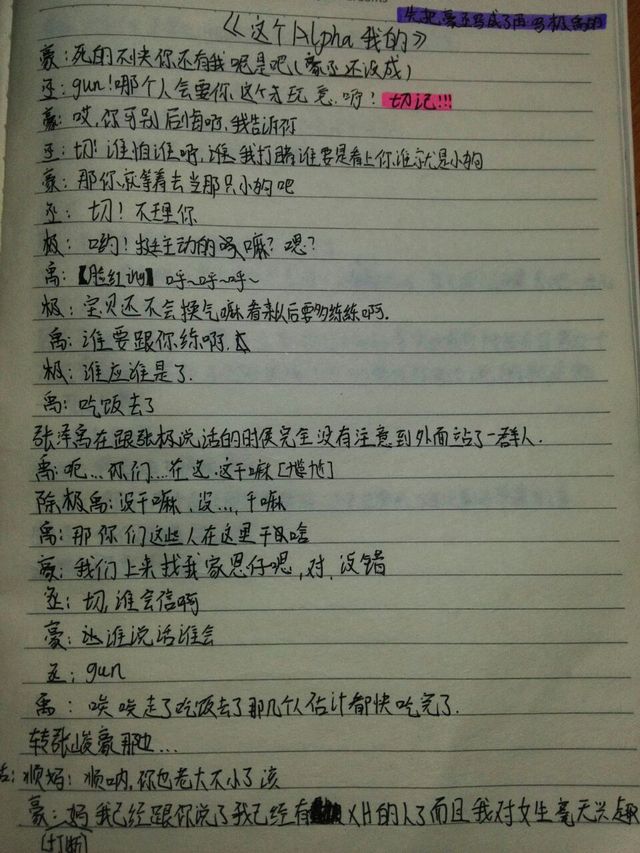 先把豪丞写成了再写极禹的
《这个Alpha我的》
豪:死的不快你还有我呢是吧(豪丞还没成)
丞:gun!哪个人会要你这个老玩意啊? 切记!!!
豪:哎,你可别后悔啊,我告诉你
丞:切!谁怕谁啊,谁我打赌谁要是看上你谁就是小狗
豪:那你就等着去当那只小狗吧
丞:切!不理你
极:哟!挺主动的嘛?嗯?
禹:【脸红】呼~呼~呼~
极:宝贝还不会换气嘛看来以后要多练练啊.
禹:谁要跟你练啊.
极:谁应谁是了.
禹:吃饭去了
张泽禹在跟张极说话的时侯完全没有注意到外面站了一群人.
禹:呃...你们...在这.这干嘛[尴尬]
除极禹:没干嘛、没...,干嘛
禹:那你们这些人在这里干啥
豪:我们上来找我家恩仔嗯,对,没错
丞:切,谁会信啊
豪:丞谁说话谁会
丞:gun
禹:唉唉走了吃饭去了那几个人估计都快吃完了.
转张峻豪那边...
顺妈:顺呐,你也老大不小了该
豪:妈我已经跟你说了我已经有XH的人了而且我对女生毫无兴趣
(打断)